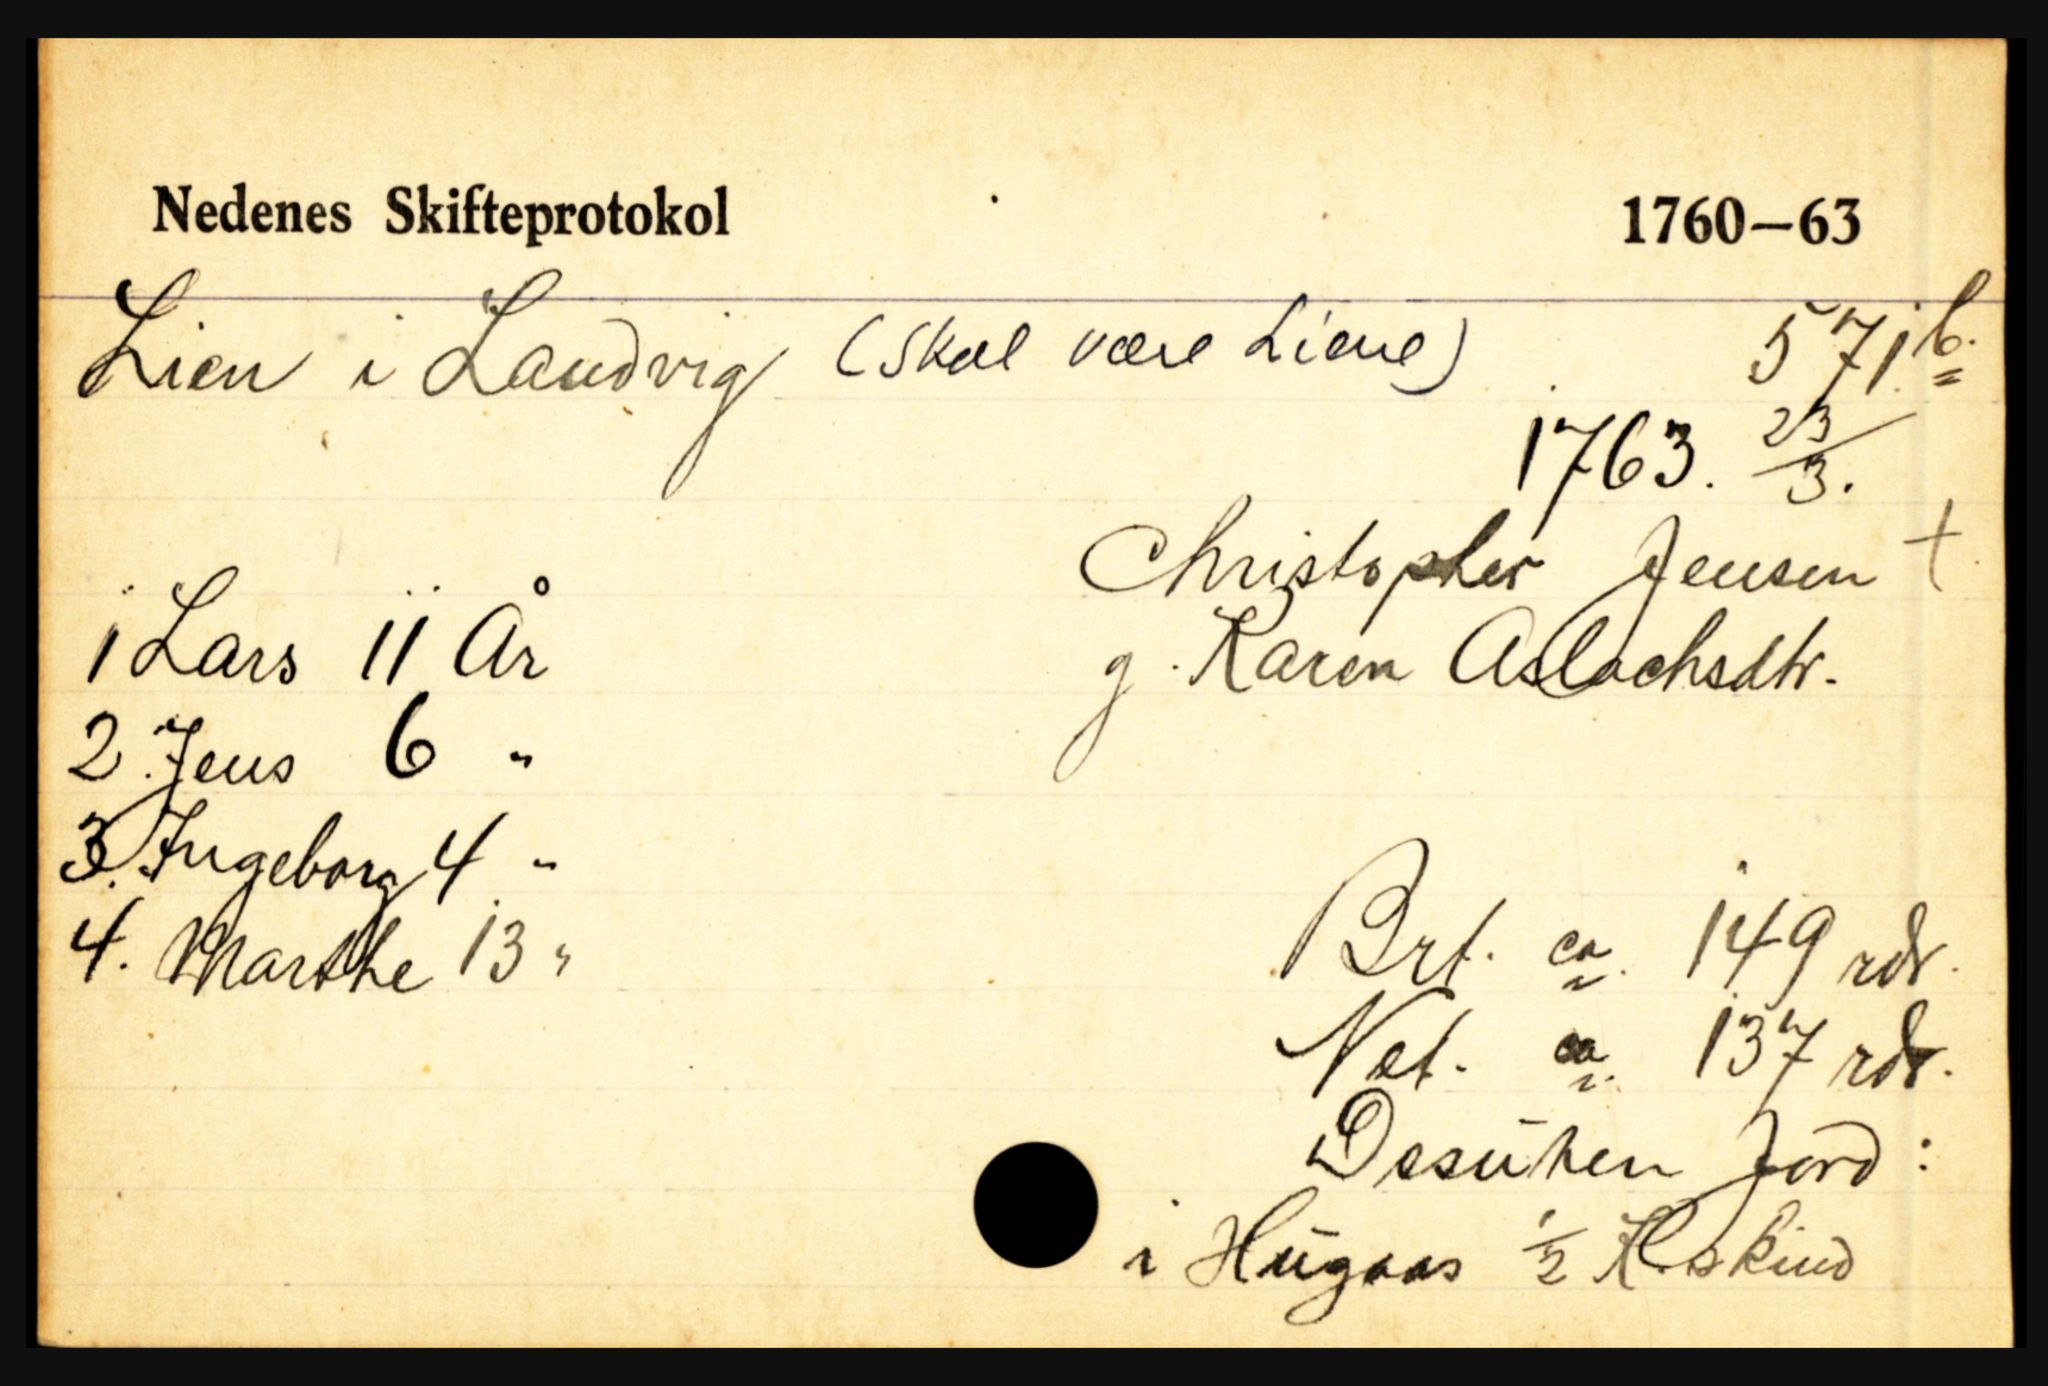 Nedenes Skifteprotokol 1760–63
Lien i Landvig (skal være Liene) 571 b.
1763. 23/3.
Christopher Jensen +
1 Lars 11 År
g. Karen Aslachsdtr.
2. Jens 6 "
3. Ingeborg 4 "
4. Marthe 13 "
Brt. ca. 149 rdr.
Net. ca. 137 rdr.
Desuten Jord:
i Hugaas 1/2 K.skind